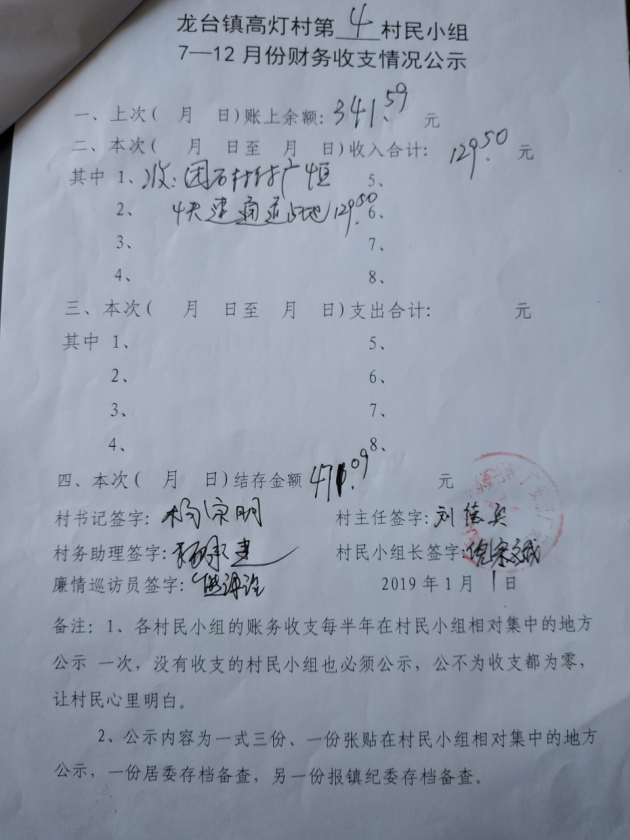 龙台镇高灯村第 4 村民小组
7—12 月份财务收支情况公示
一、上次( 月 日)账上余额: 341.59 元
二、本次( 月 日至 月 日)收入合计: 129.50 元
其中 1、收: 5、
2、快速通道占地129.50 6、
3、 7、
4、 8、
三、本次( 月 日至 月 日)支出合计: 元
其中 1、 5、
2、 6、
3、 7、
4、 8、
四、本次( 月 日)结存金额 471.09 元
村书记签字: 村主任签字:
村务助理签字: 村民小组长签字:
廉情巡访员签字: 2019 年 1 月 1 日
备注: 1、各村民小组的账务收支每半年在村民小组相对集中的地方
公示 一次，没有收支的村民小组也必须公示，公不为收支都为零，
让村民心里明白。
2、公示内容为一式三份、一份张贴在村民小组相对集中的地方
公示，一份居委存档备查，另一份报镇纪委存档备查。